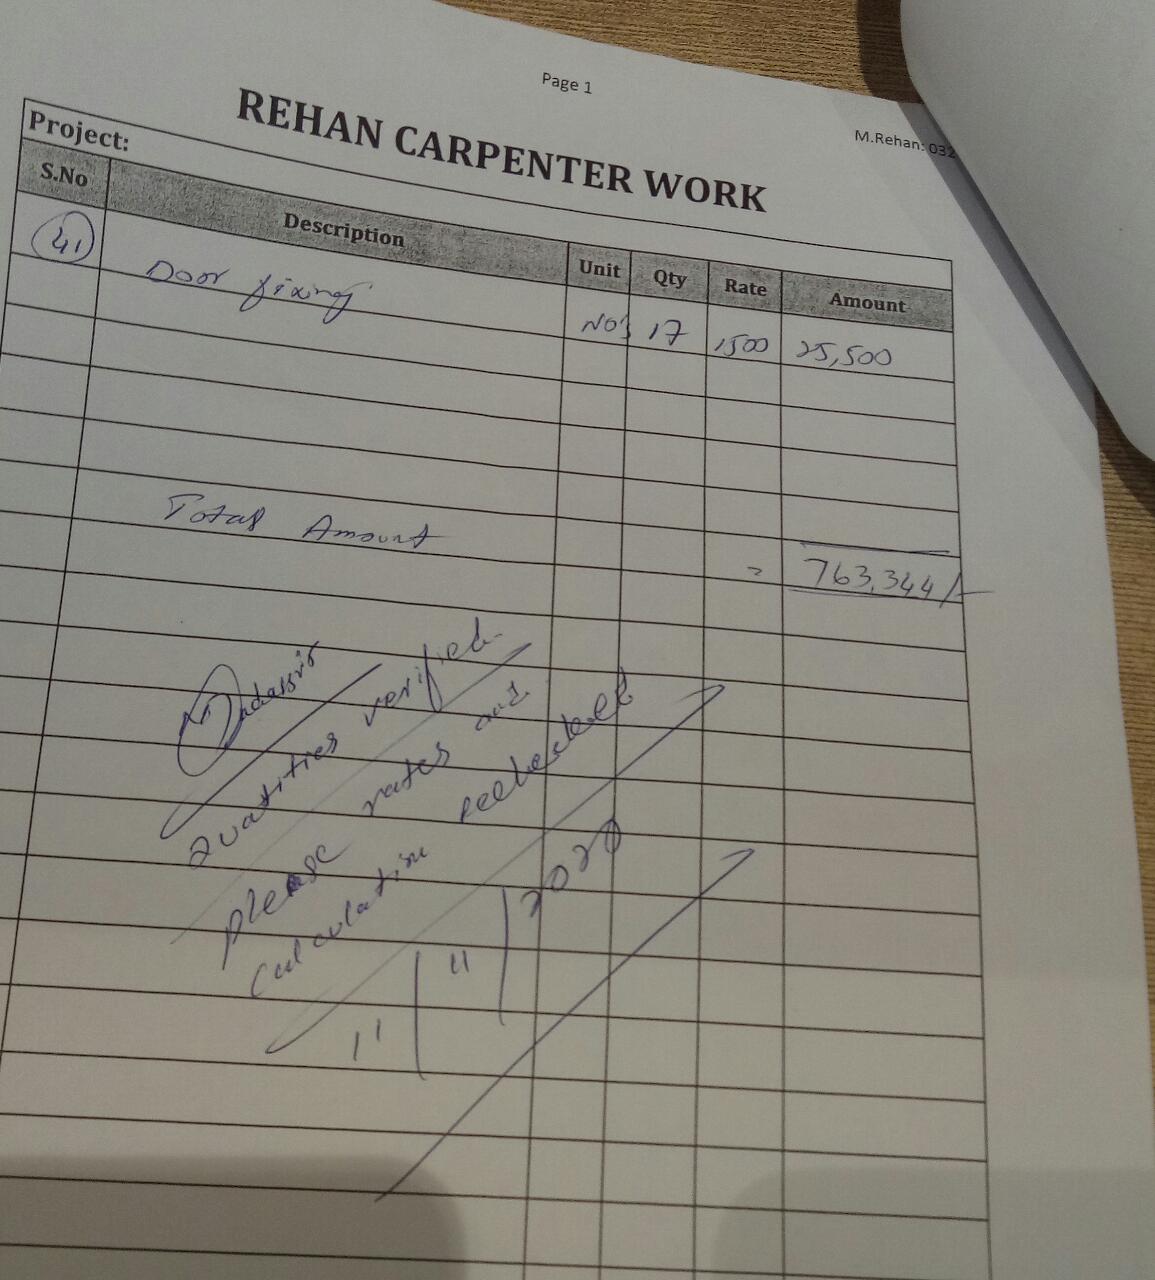 Page 1
M.Rehan: 032
REHAN CARPENTER WORK
Project:
S.No Description Unit Qty Rate Amount
41 Door fixing NO's 17 1500 25,500
Total Amount = 763,344/-
Quatities verified
please rates and
calculation
11/11/2020